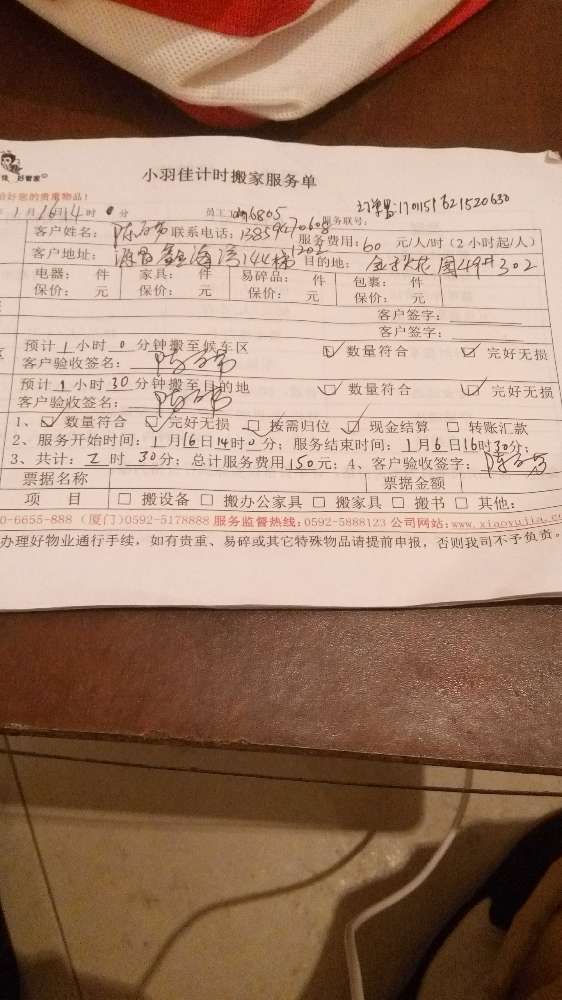 好管家
小羽佳计时搬家服务单
给好您的贵重物品!
1月16日14时0分 员工 6805 服务联号: 订单号:170115162 1520630
客户姓名: 陈 联系电话:13859470608 服务费用:60元/人/时(2小时起/人)
客户地址: 海湾144梯1202 目的地: 金 花园49# 302
电器: 件 家具: 件 易碎品: 件 包裹: 件
保价: 元 保价: 元 保价: 元 保价: 元
客户签字:
客户签字:
预计1小时0分钟搬至候车区 ☑ 数量符合 ☑ 完好无损
客户验收签名: 陈
预计1小时30分钟搬至目的地 ☑ 数量符合 ☑ 完好无损
客户验收签名: 陈
1、☑ 数量符合 ☑ 完好无损 □ 按需归位 ☑ 现金结算 □ 转账汇款
2、服务开始时间:1月16日14时0分; 服务结束时间:1月6日16时30分;
3、共计:2时30分; 总计服务费用150元; 4、客户验收签字: 陈
票据名称 票据金额
项 目 □ 搬设备 □ 搬办公家具 □ 搬家具 □ 搬书 □ 其他:
0-6655-888 (厦门)0592-5178888 服务监督热线:0592-5888123 公司网站:www.xiaoyujia.c
办理好物业通行手续,如有贵重、易碎或其它特殊物品请提前申报,否则我司不予负责。